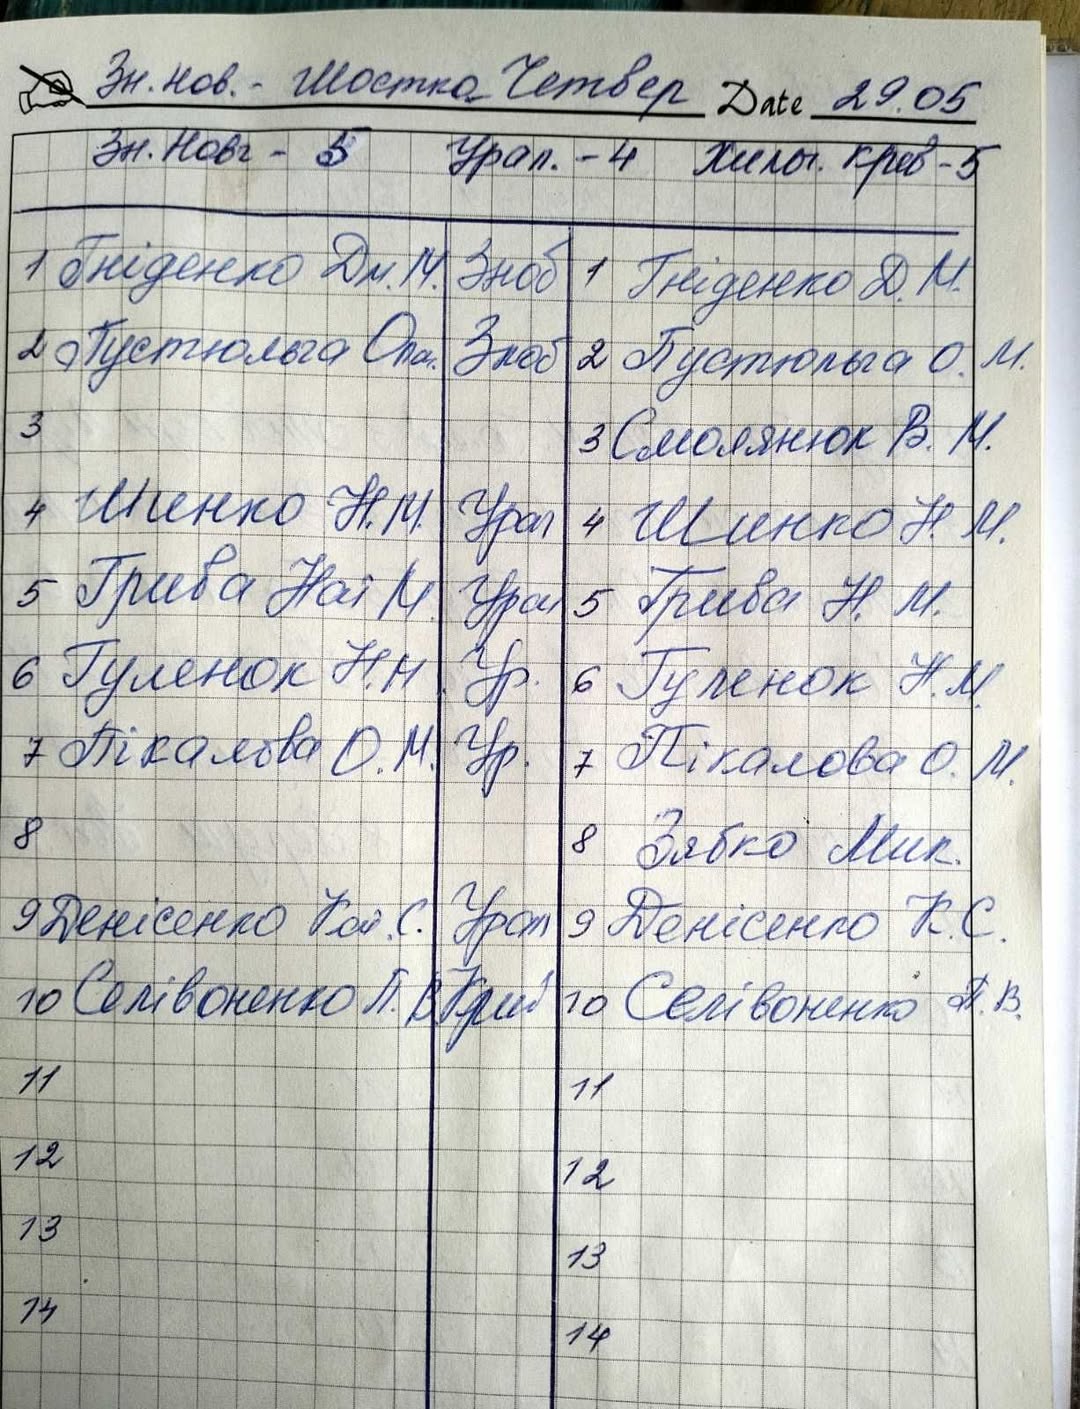 Зн. Нов. - Шостка Четвер Date 29.05
Зн. Новг - 5 Урал. - 4 Хильч. Крив - 5
1 Гніденко Дм. М. Зноб 1 Гніденко Д. М.
2 Пустюльга Зноб 2 Пустюльга О. М.
3 3 Смолянюк В. М.
4 Шинко Н. М. Урал 4 Шинко Н. М.
5 Грива Нат М. Урал 5 Грива Н. М.
6 Гуленок Н. М Ур. 6 Гуленок Н. М.
7 Пікалова О. М. Ур. 7 Пікалова О. М.
8 8 Зябко Мик.
9 Денісенко Кат. С. Урал 9 Денісенко К. С.
10 Селівоненко П. В. 10 Селівоненко П. В.
11 11
12 12
13 13
14 14